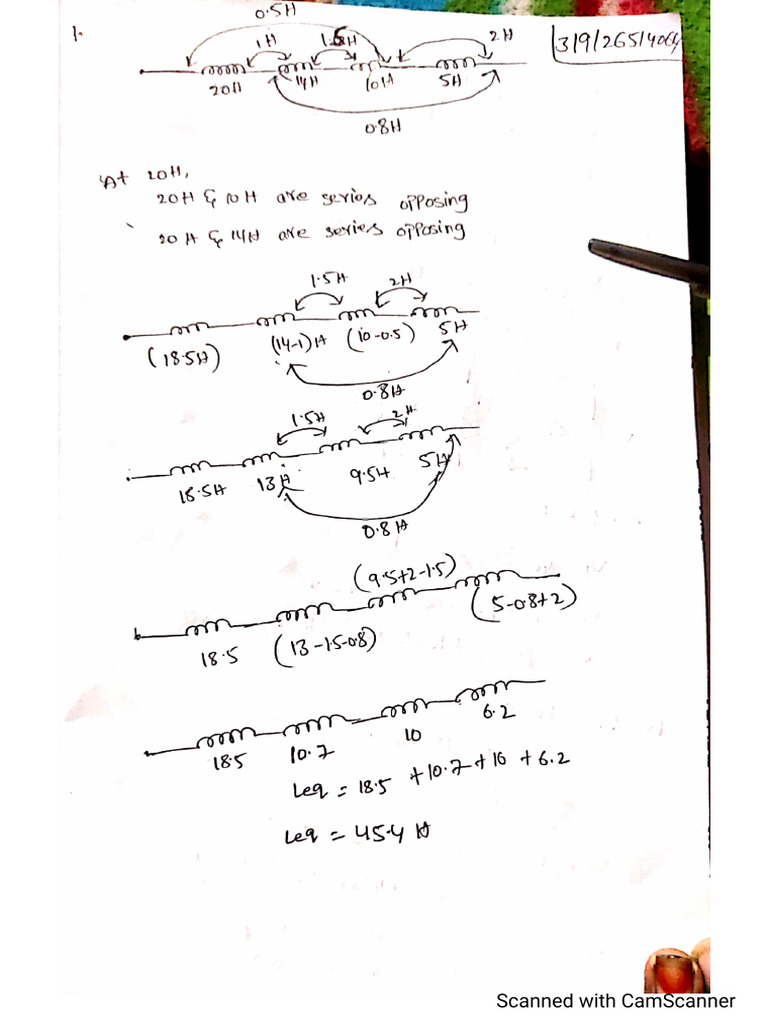 1.
0.5H
1H 1.5H 2H
3/9/265/4064
20H 14H 10H 5H
0.8H
At 20H,
20H & 10H are series opposing
20H & 14H are series opposing
1.5H 2H
(18.5H) (14-1)H (10-0.5) 5H
0.8H
1.5H 2H
18.5H 13H 9.5H 5H
0.8H
(9.5+2-1.5)
18.5 (13-1.5-0.8) (5-0.8+2)
18.5 10.7 10 6.2
Leq = 18.5 + 10.7 + 10 + 6.2
Leq = 45.4 H
Scanned with CamScanner